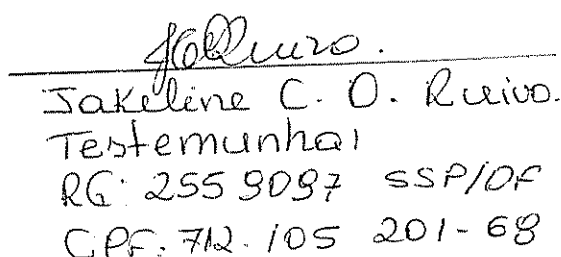 Jakeline C. O. Ruivo.
Testemunha1
RG: 2559097 SSP/DF
CPF: 712.105 201-68